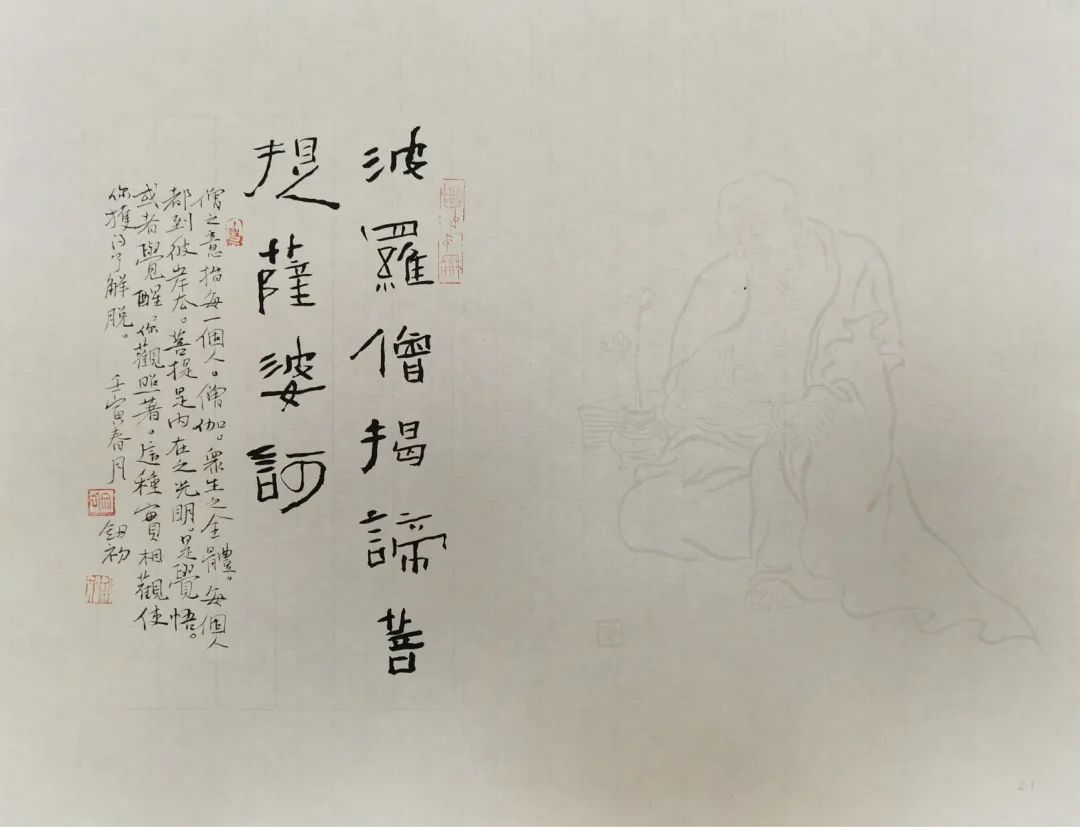 波羅僧揭諦菩
提薩婆訶
僧之意指每一個人。僧伽。衆生之全體。每個人
都到彼岸去。菩提是内在之光明。是覺悟。
或者覺醒。你觀照著。這種實相觀使
你獲得了解脱。壬寅春月
初